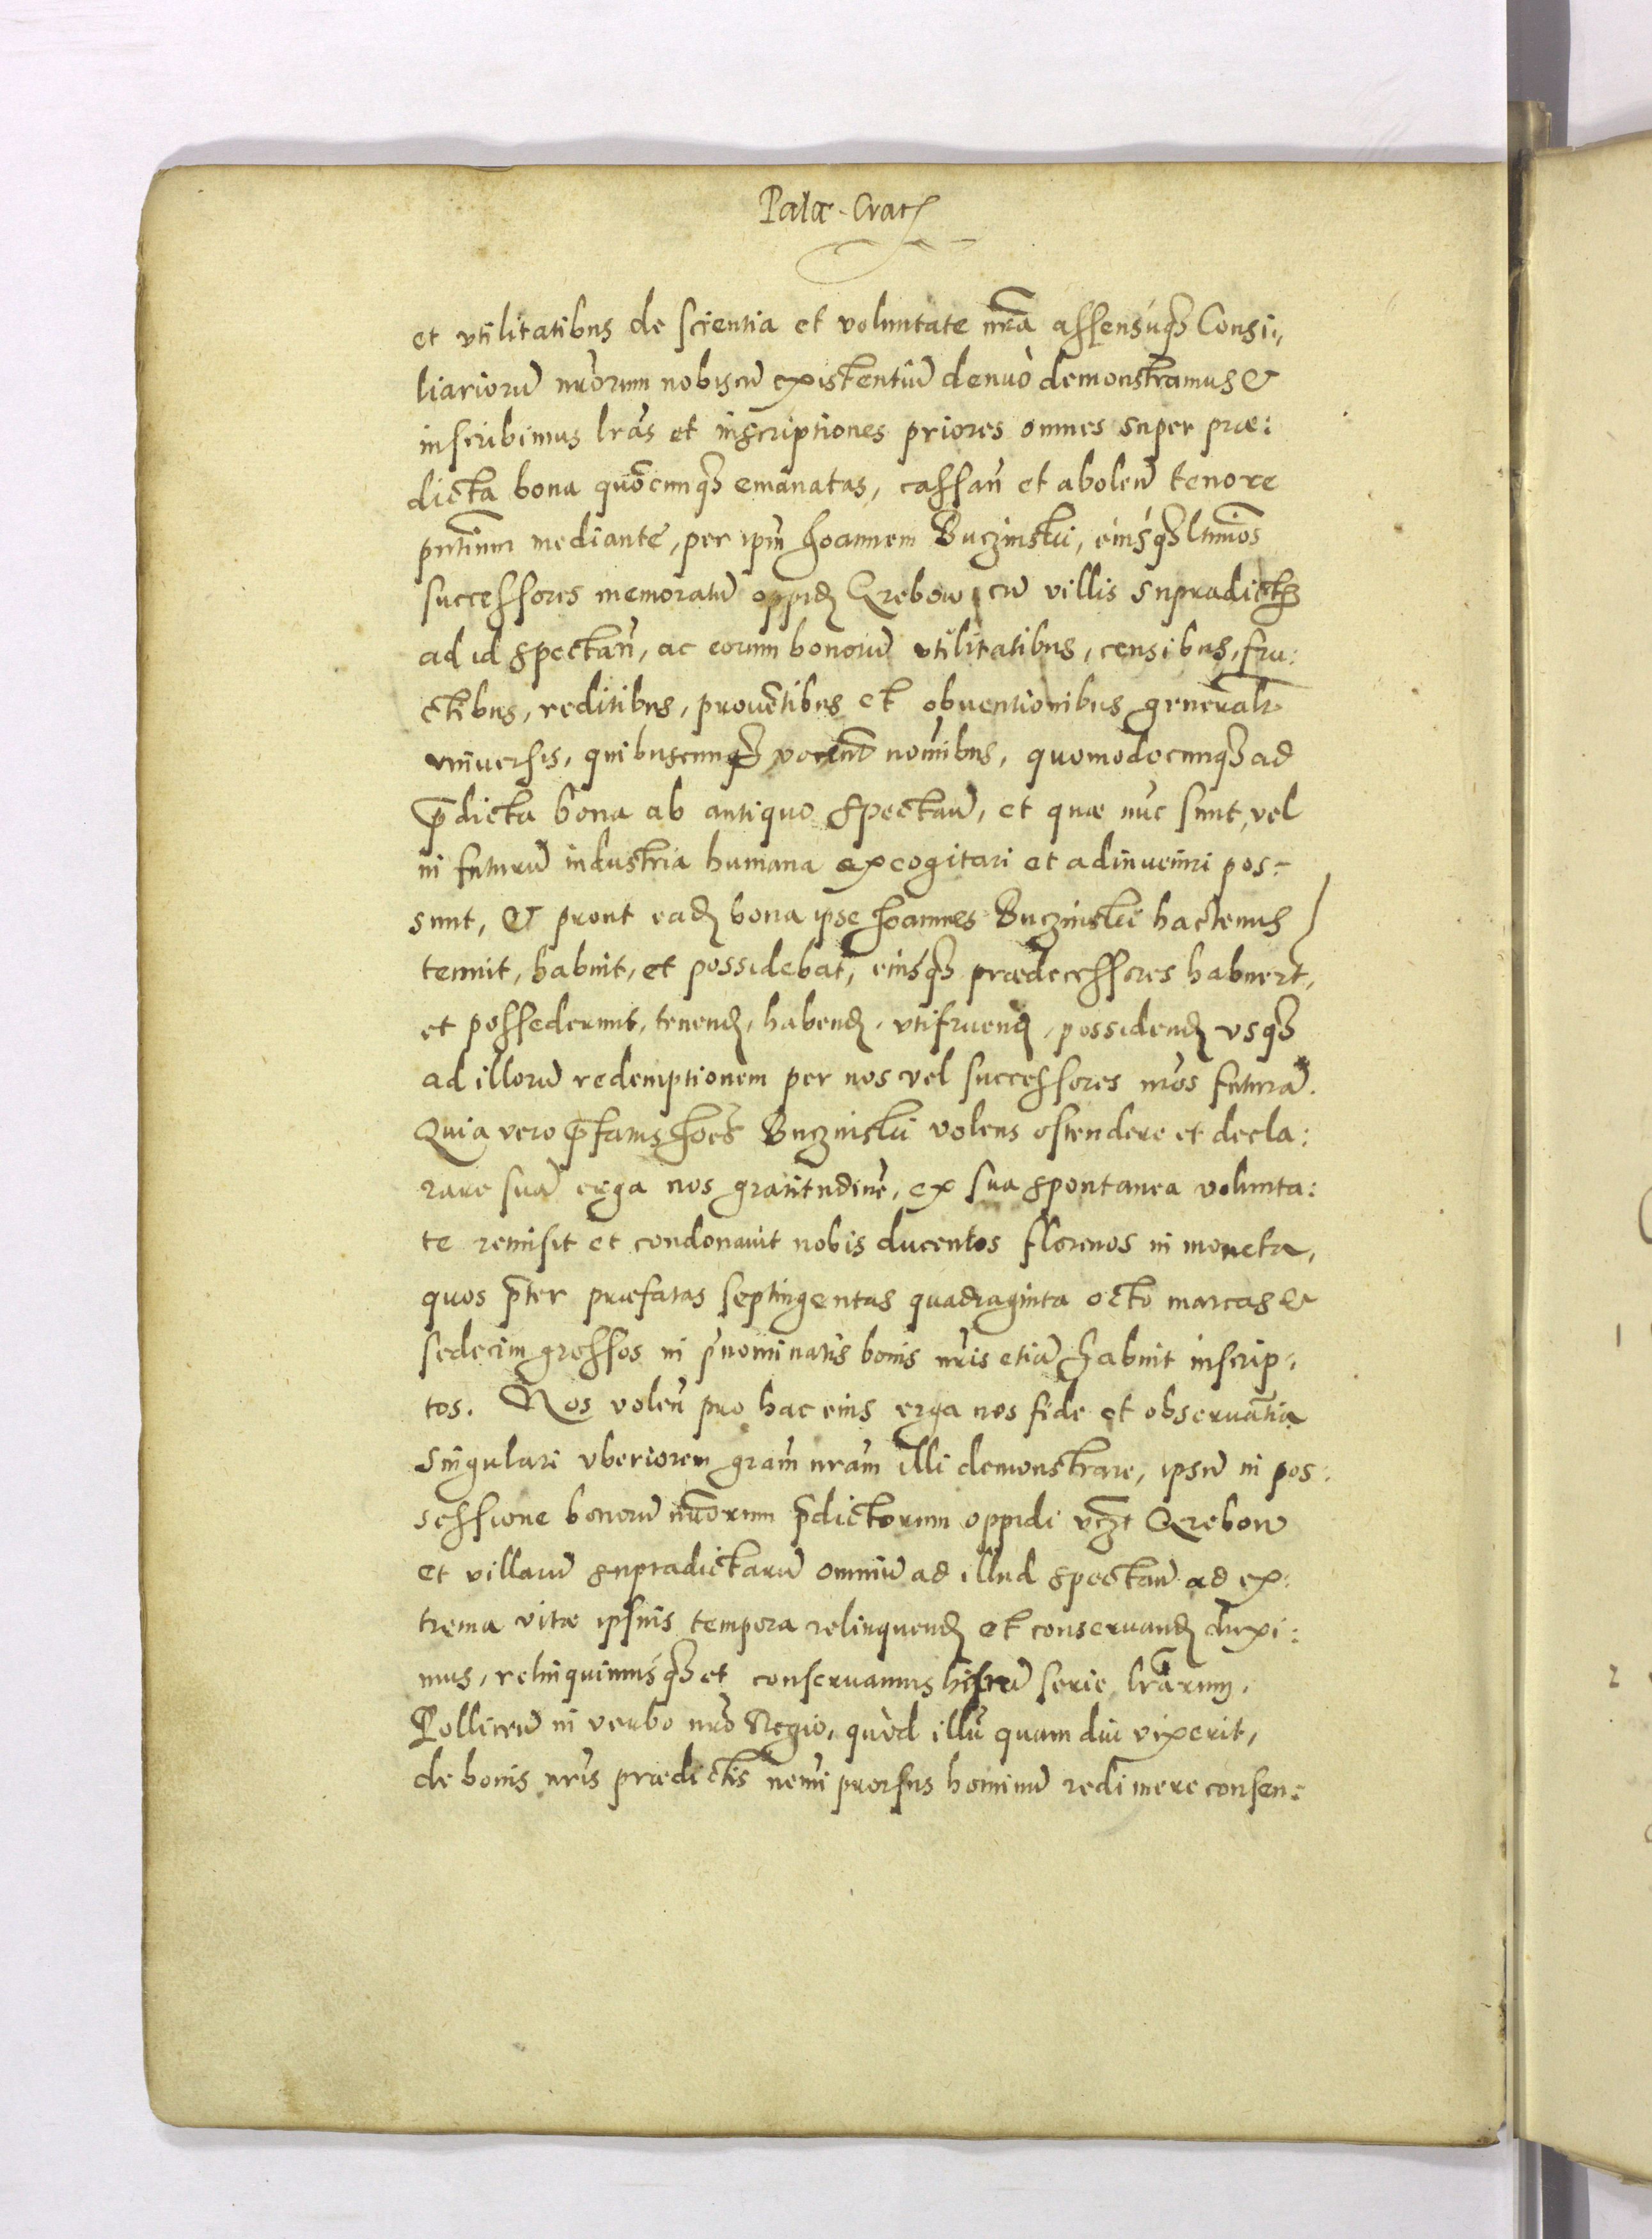 Palae-Crac
et vtilitatibus de scientia et voluntate nr̃a assensuqȝ Consi„
liariorū nr̃orum nobiscū existentiū denuò demonstramus &
inscribimus lr̃as et inscriptiones priores omnes super præ:
dicta bona quõcunqȝ emanatas, cassañ et aboleñ tenore
pñtium mediante, per ipm̃ Joannem Buczinskii, eiúsqȝ ltimos
successores memoratū oppid Grebow cū villis supradict
ad id spectañ, ac eorum bonorū vtilitatibus, censibus, fru:
ctibus, reditibus, prouẽtibus et obuentionibus generalr
vniuersis, quibuscunqȝ vocent nom̃ibus, quomodocunqȝ ad
p̃dicta bona ab antiquo spectañ, et quæ nũc sunt, vel
in futurū industria humana excogitari et adinueniri pos-
sunt, & prout ead bona ipse Joannes Buczinskii hactenus
tenuit, habuit, et possidebat, eiúsqȝ prædecessores habuert,
et possederunt, tenend, habend, vtifruend, possidend vsqȝ
ad illorū redemptionem per nos vel successores nr̃os futurā.
Quia vero p̃fatus Joẽs Buczinskii volens ostendere et decla:
rare suā erga nos gratitudinē, ex sua spontanea volunta:
te remisit et condonauit nobis ducentos florenos in moneta,
quos p̃ter præfatas septingentas quadraginta octo marcas &
sedecim grossos in p̃nominatis bonis nr̃is etiā habuit inscrip-
tos. Nos voleñ pro hac eius erga nos fide et obseruãtia
singulari vberiorem gram̃ nram̃ illi demonstrare, ipsū in pos:
sessione bonorū nr̃orum p̃dictorum oppidi vczt Grebow
et villarū supradictarū omniū ad illud spectañ ad ex:
trema vitæ ipsius tempora relinquend et conseruand duxi:
mus, relinquimúsqȝ et conseruamus hisce serie lr̃arum.
Polliceñ in verbo nrõ Regio, quòd illū quam diu vixerit,
de bonis nr̃is prædictis nemi prorsus hominū redimere consen: